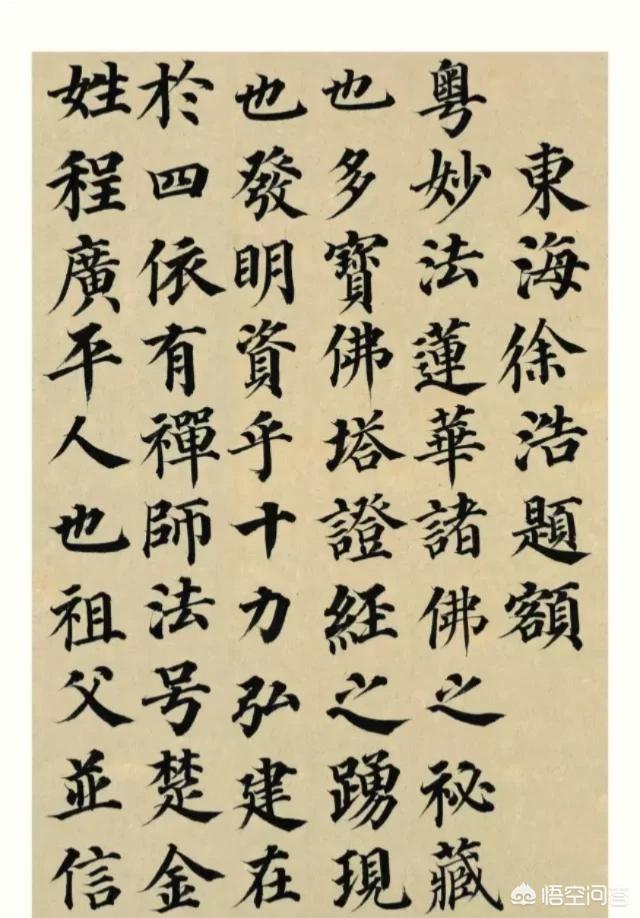 東海徐浩題額
粤妙法蓮華諸佛之祕藏
也多寶佛塔證經之踴現
也發明資乎十力弘建在
於四依有禪師法号楚金
姓程廣平人也祖父並信
悟空问答